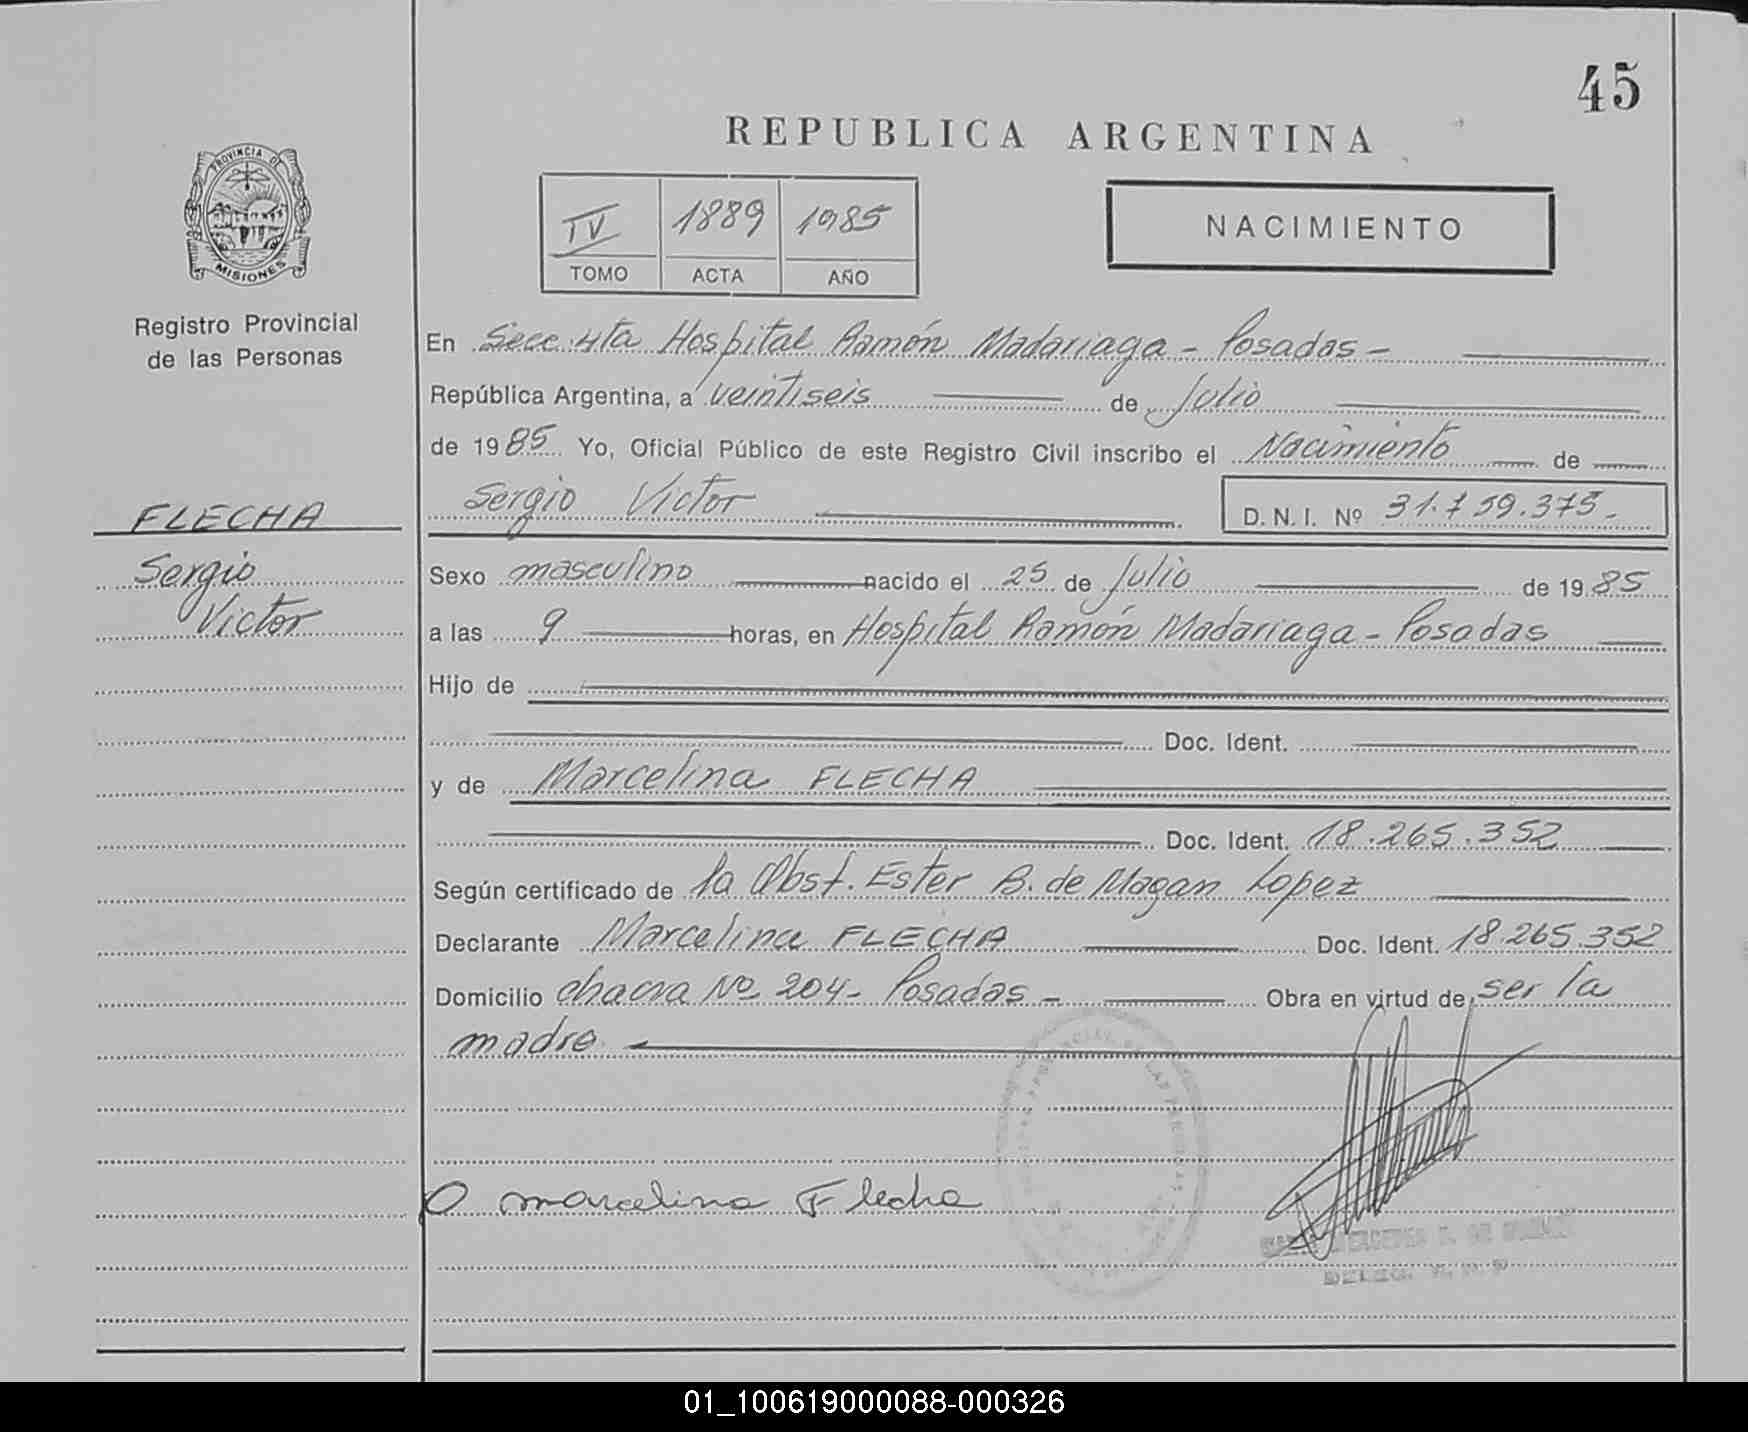 45
REPUBLICA ARGENTINA
PROVINCIA DE
MISIONES
IV 1889 1985
TOMO ACTA AÑO
NACIMIENTO
Registro Provincial
de las Personas
FLECHA
Sergio
Victor
En Secc. 4ta Hospital Ramón Madariaga - Posadas -
República Argentina, a veintiseis de Julio
de 1985 Yo, Oficial Público de este Registro Civil inscribo el Nacimiento de
Sergio Victor D. N. I. Nº 31.759.375.-
Sexo masculino nacido el 25 de Julio de 1985
a las 9 horas, en Hospital Ramón Madariaga - Posadas
Hijo de
Doc. Ident.
y de Marcelina FLECHA
Doc. Ident. 18.265.352
Según certificado de la Obst. Ester B. de Magan Lopez
Declarante Marcelina FLECHA Doc. Ident. 18.265.352
Domicilio chacra Nº 204- Posadas - Obra en virtud de ser la
madre
marcelina Flecha
01_100619000088-000326